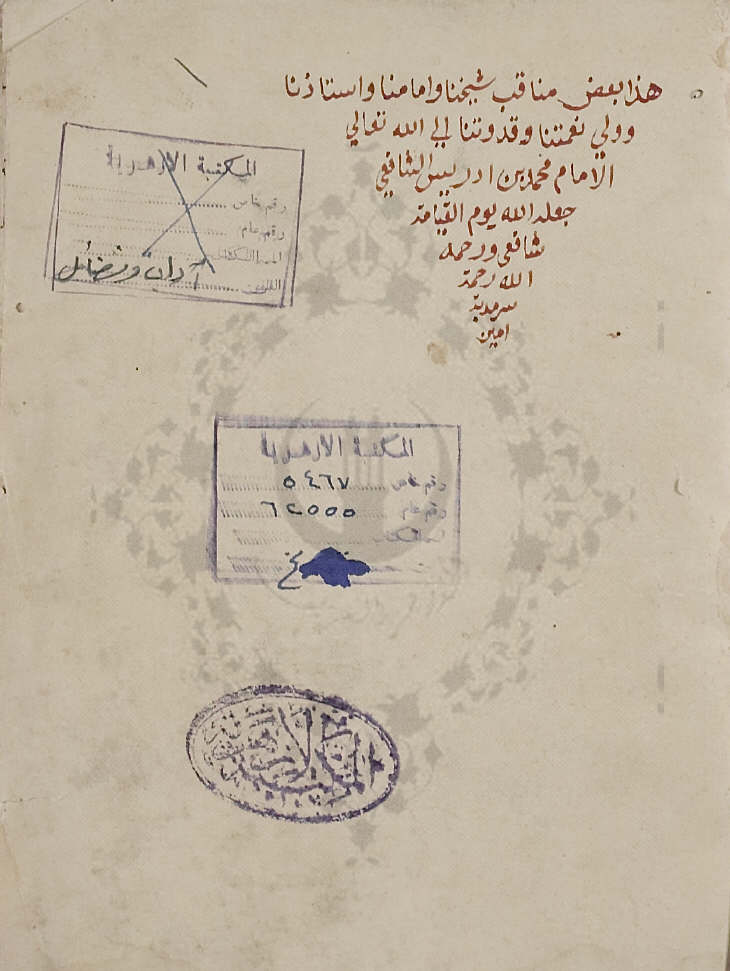 هذا بعض مناقب شيخنا وامامنا واستاذنا
وولي نعمتنا وقدوتنا الي الله تعالي
الامام محمد بن ادريس الشافعي
جعله الله يوم القيامة
شافعي ورحمه
الله رحمة
سرمدية
امين
المكتبة الازهرية
رقم خاص
رقم عام
آداب وفضائل
المكتبة الازهرية
رقم خاص ٥٤٦٧
رقم عام ٦٢٥٥٥